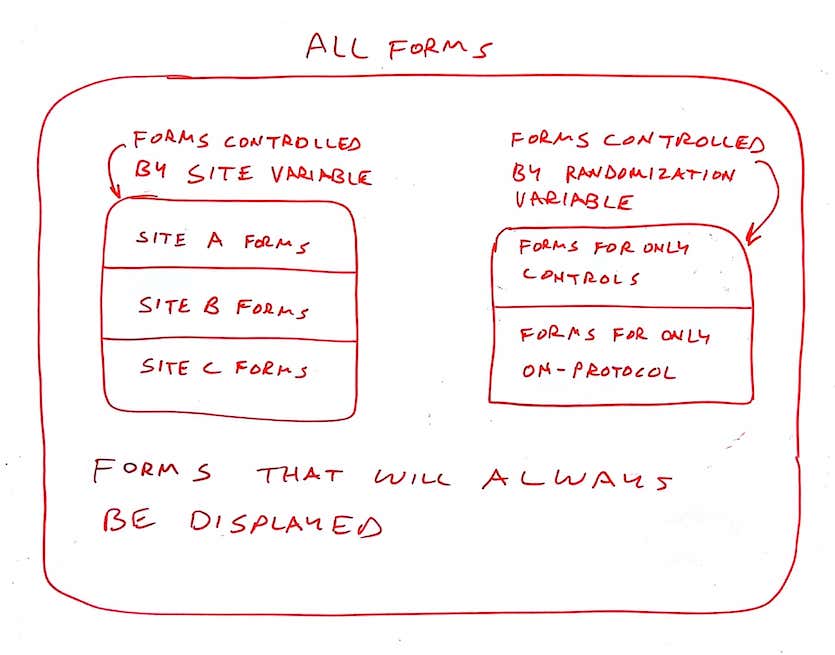 ALL FORMS
FORMS CONTROLLED
BY SITE VARIABLE
SITE A FORMS
SITE B FORMS
SITE C FORMS
FORMS CONTROLLED
BY RANDOMIZATION
VARIABLE
FORMS FOR ONLY
CONTROLS
FORMS FOR ONLY
ON-PROTOCOL
FORMS THAT WILL ALWAYS
BE DISPLAYED